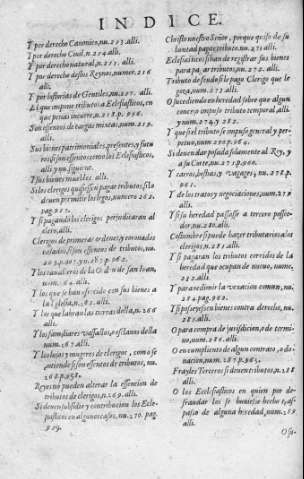 INDICE.
Y por derecho Canonico, nu. 253. alli.
Y por derecho Civil, n. 254. alli.
Y por derecho natural, n. 261. alli.
Y por derecho destos Reynos, numer. 216
alli.
Y por historias de Gentiles, nu. 257. alli.
A que impone tributos a Eclesiasticos, en
que penas incurre, n. 258. p. 956.
Son essentos de cargas mixtas, num. 259.
alli.
Sus bienes patrimoniales, presentes, y futu
ros son essentos como los Eclesiasticos,
alli y nu. siguiente.
Y sus bienes muebles. alli.
Si los clerigos quisiessen pagar tributos si la
deven permitir los legos, numero 262.
pag. 957.
Y si pagandolos clerigos perjudicaran al
clero, alli.
Clerigos de primeras ordenes, y coronados
casados, si son essentos de tributos, nu.
Y los cavalleros de la Orden de san Ioan,
num. 264. alli.
Y los que se han ofrecido con sus bienes a
la Iglesia, n. 265. alli.
Y los que labran las tierras della, n. 266
alli.
Y los familiares vassallos, o esclavos della
num. 267. alli.
Y los hijos y mugeres de clerigos, como se
entiende si son essentos de tributos, nu.
268. p. 958.
Reyes no pueden alterar la essencion de
tributos de clerigos, n. 269. alli.
Si deven subsidio y contribucion los Ecle-
siasticos en algunos casos, nu. 270. pag.
959.
Christo nuestro Señor, porque quiso de su
voluntad pagar tributo, nu. 271. alli.
Eclesiasticos si han de registrar sus bienes
para pagar tributos, nu. 272. alli.
Tributo de fundo si le pago Clerigo que le
goza, num. 273. alli.
O sucediendo en heredad sobre que algun
concejo impuso tributo temporal, alli,
y num. 274. y 282.
Y que si el tributo se impuso general, y per-
petuo, num. 275. p. 964.
Si deven dar posada solamente al Rey, y
a su Corte, nu. 271. p. 960.
Y carros, bestias, y vagages, nu. 278.
alli.
Y de los tratos y negociaciones, num. 279
alli.
Y si su heredad passasse a tercero possee-
dor, nu. 280. alli.
Costumbre si puede hazer tributarios a los
clerigos, n. 281. alli.
Y si pagaran los tributos corridos de la
heredad que ocupan de nuevo, nume.
282. alli.
Y para redimir la vexacion comun, nu.
284. pag. 962.
Y si posseyessen bienes contra derecho, nu.
285. alli.
O para compra de jurisdicion, o de termi-
no, num. 286. alli.
O en cumplimiento de algun contrato, o do-
nacion, num. 287. p. 963.
Frayles Terceros si deven tributos, n. 288
alli.
O los Eclesiasticos en quien por de-
fraudar los se huviesse hecho tras-
passo de alguna heredad, num. 289
alli.
O si a.